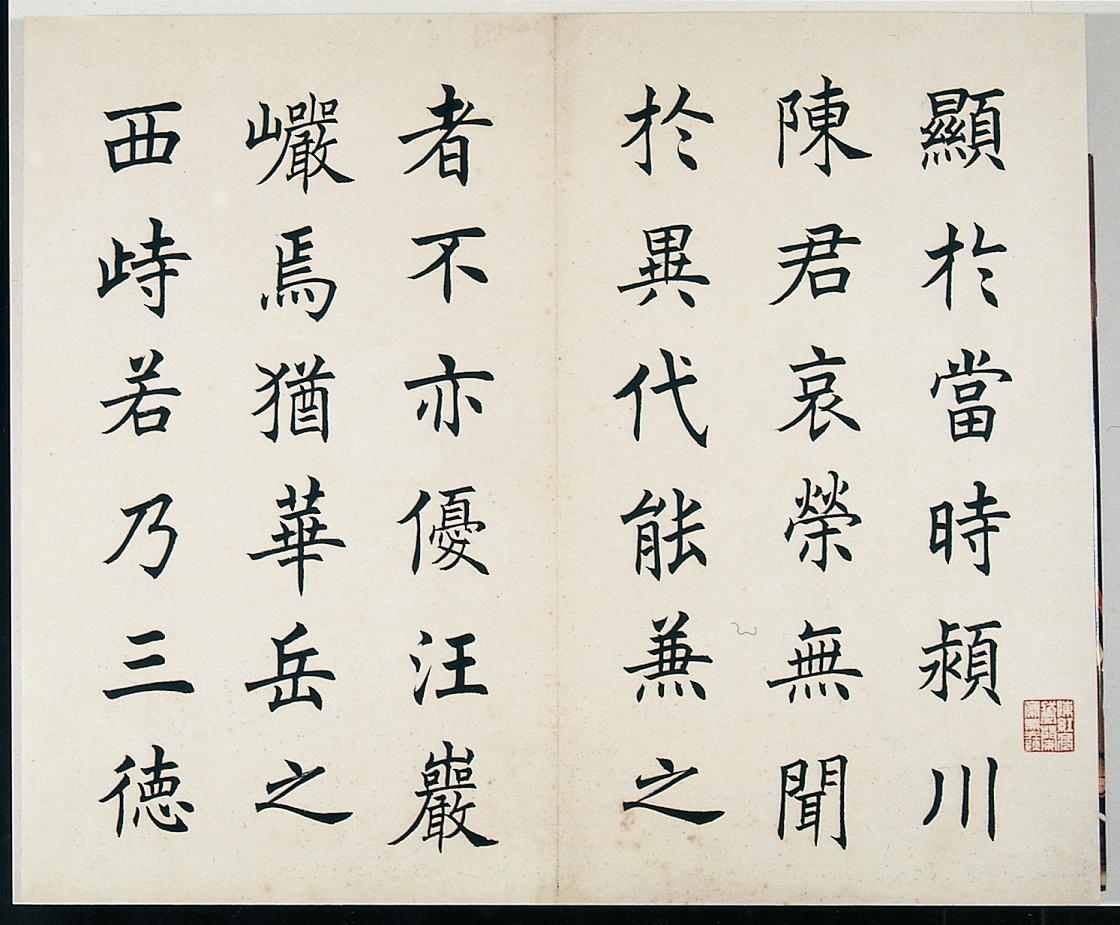 顯於當時潁川
陳君哀榮無聞
於異代能兼之
者不亦優汪巖
巗焉猶華岳之
西峙若乃三德